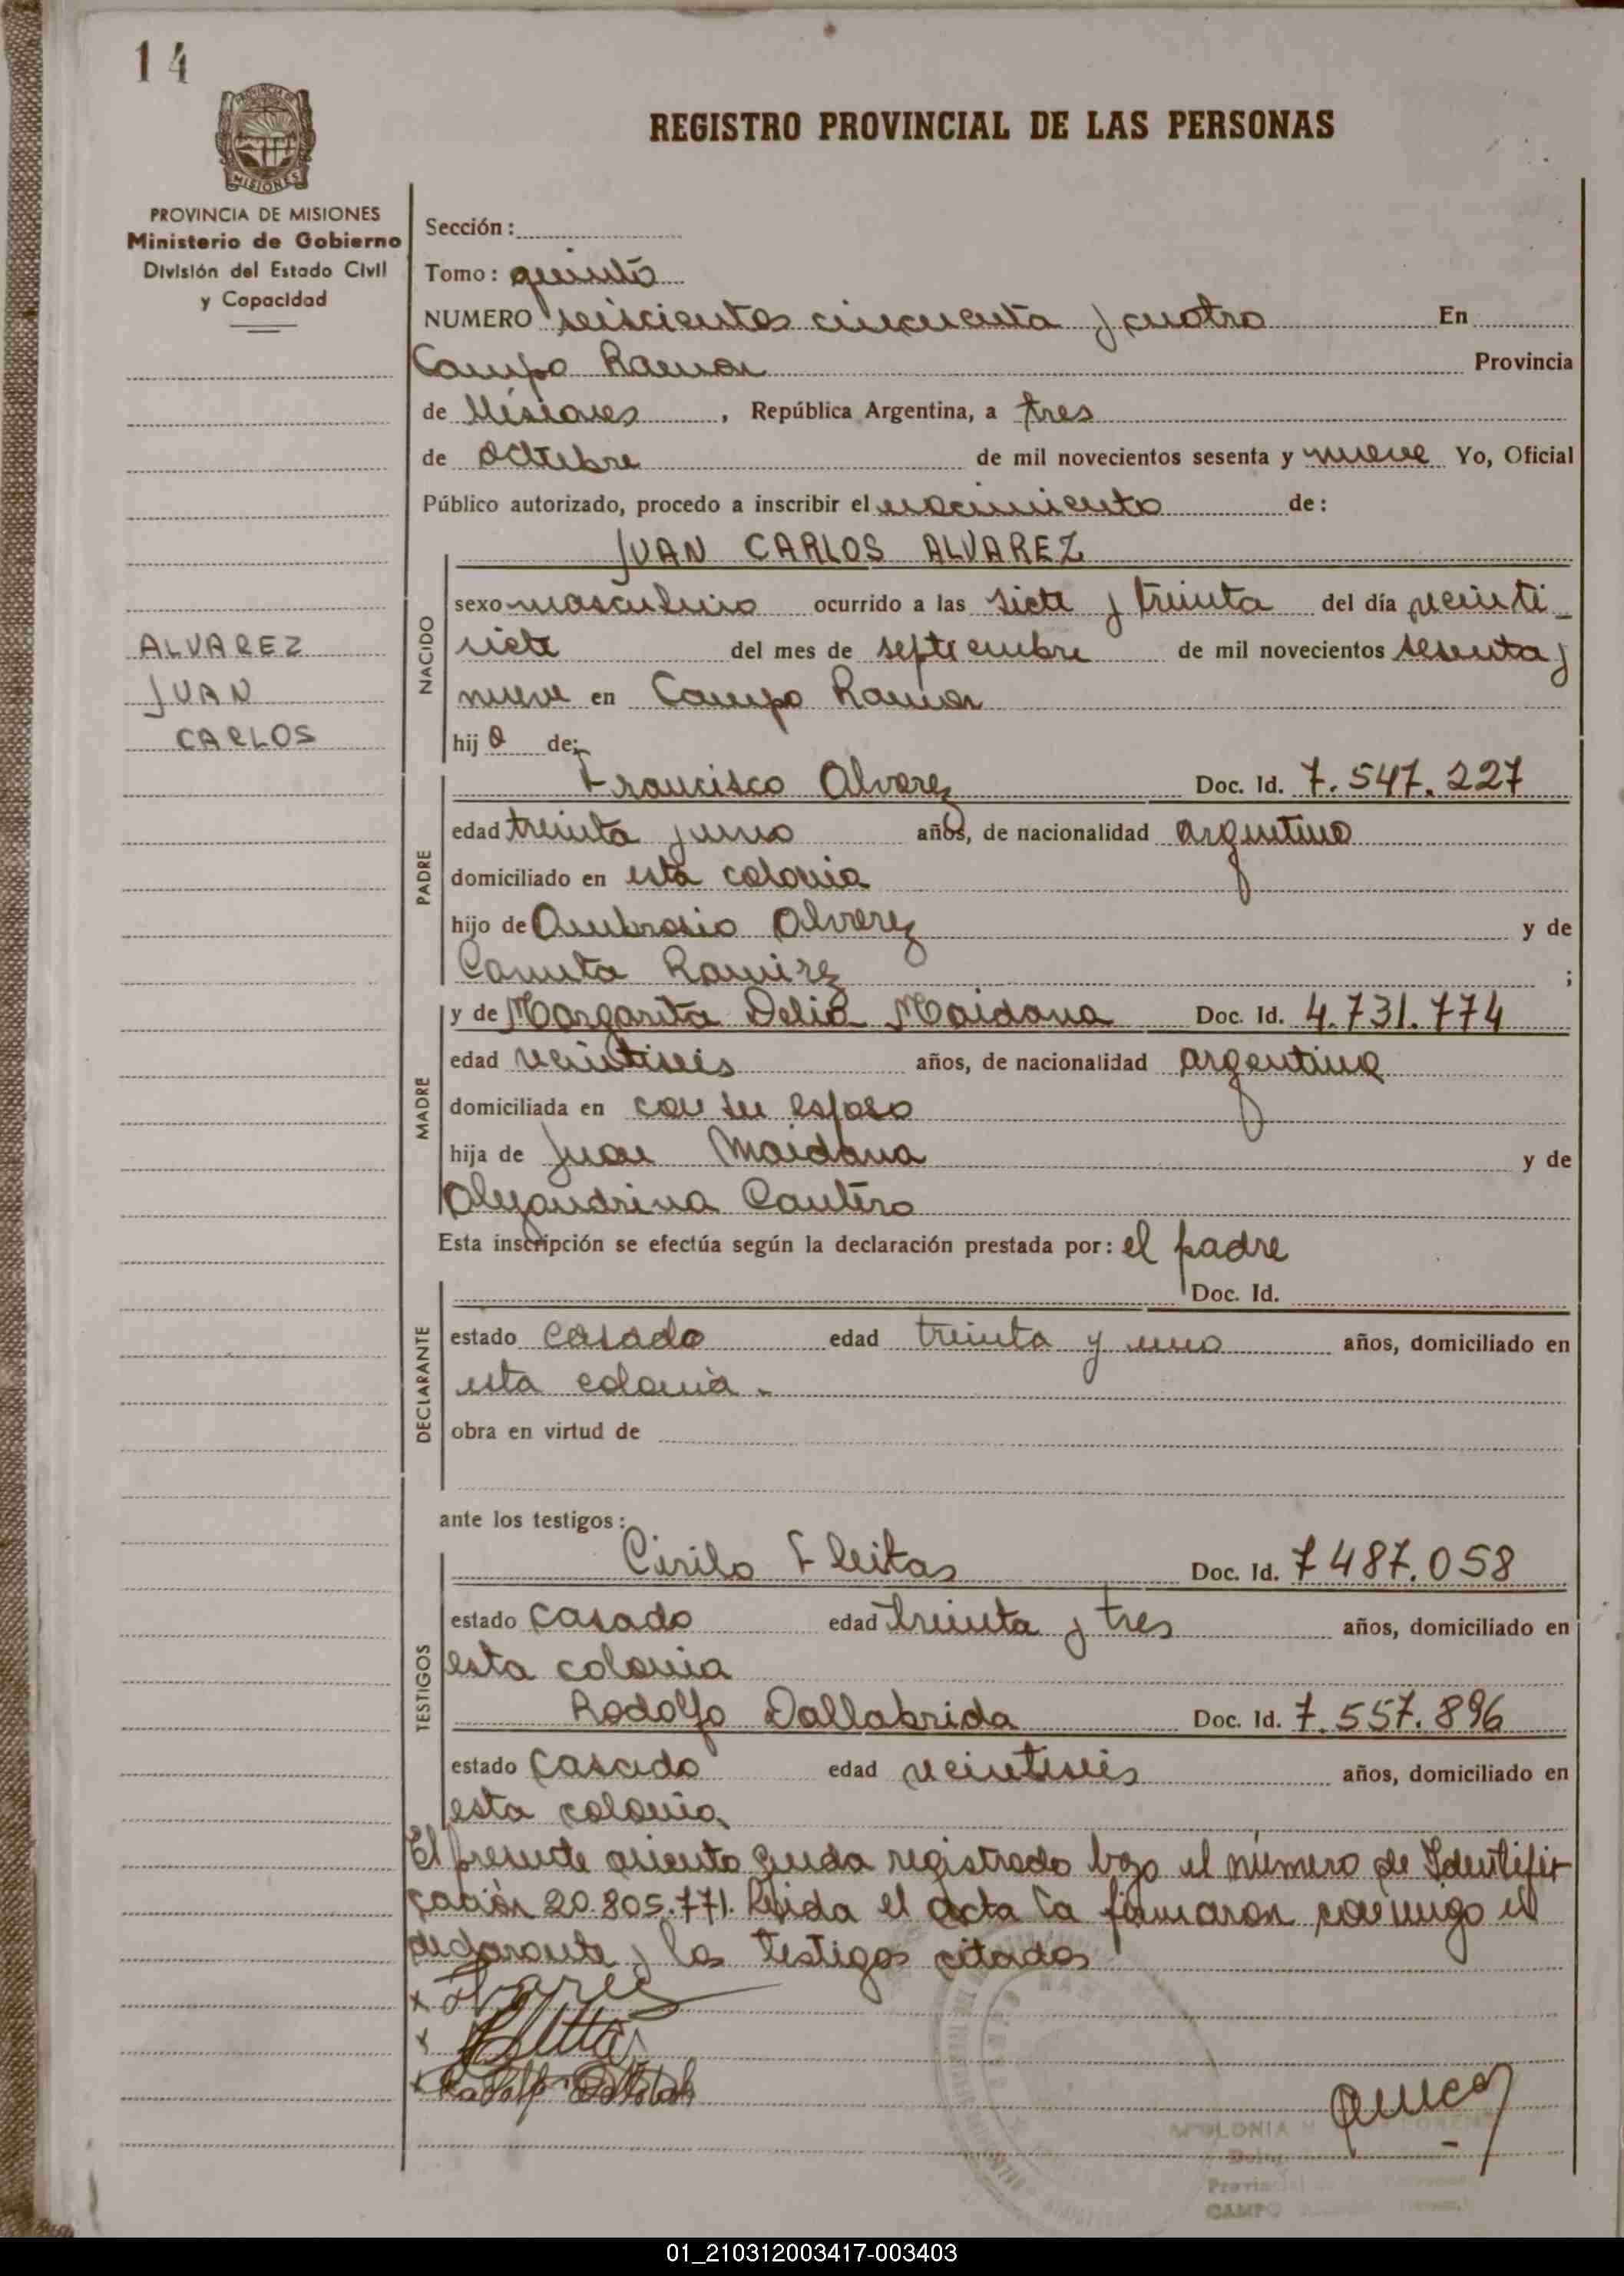 14
PROVINCIA DE MISIONES
Ministerio de Gobierno
División del Estado Civil
y Capacidad
REGISTRO PROVINCIAL DE LAS PERSONAS
Sección:
Tomo: quinto
NUMERO seiscientos cincuenta y cuatro En
Campo Ramon Provincia
de Misiones, República Argentina, a tres
de octubre de mil novecientos sesenta y nueve Yo, Oficial
Público autorizado, procedo a inscribir el nacimiento de:
JUAN CARLOS ALVAREZ
NACIDO
sexo masculino ocurrido a las siete y treinta del día veinti
siete del mes de septiembre de mil novecientos sesenta y
nueve en Campo Ramon
hijo de:
ALVAREZ
JUAN
CARLOS
PADRE
Francisco Alvarez Doc. Id. 7.547.227
edad treinta y uno años, de nacionalidad argentino
domiciliado en esta colonia
hijo de Ambrosio Alvarez y de
Canuta Ramirez ;
MADRE
y de Margarita Delia Maidana Doc. Id. 4.731.774
edad veintiseis años, de nacionalidad argentina
domiciliada en con su esposo
hija de Juan Maidana y de
Alejandrina Cantero
Esta inscripción se efectúa según la declaración prestada por: el padre
DECLARANTE
Doc. Id.
estado casado edad treinta y uno años, domiciliado en
esta colonia.
obra en virtud de
ante los testigos:
TESTIGOS
Cirilo Fleitas Doc. Id. 7487.058
estado casado edad treinta y tres años, domiciliado en
esta colonia
Rodolfo Dallabrida Doc. Id. 7.557.896
estado casado edad veintiseis años, domiciliado en
esta colonia
El presente asiento queda registrado bajo el número de Identifi
cación 20.805.771. Leida el acta la firmaron conmigo el
declarante y los testigos citados
APOLONIA
CAMPO
01_210312003417-003403